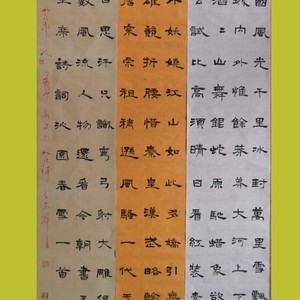 國風光千里冰封萬里雪飄
城內外惟餘莽莽大河上下
滔二山舞銀蛇原馳蠟象
公試比高須晴日看紅裝素
外妖嬈江山如此多嬌引
雄競折腰惜秦皇漢武略輸
唐宗宋祖稍遜風騷一代天
思汗只識彎弓射大雕
數風流人物還看今朝書毛
主席詩詞沁園春雪一首